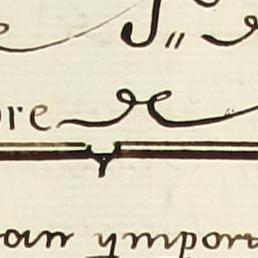 J"
ore
oan ymport